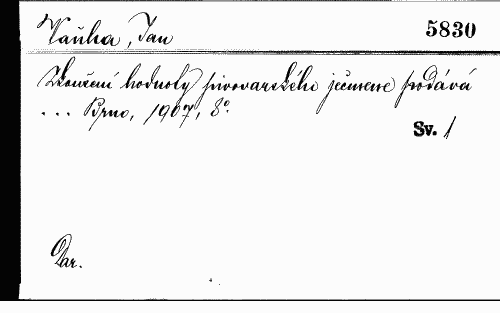 Vaňha, Jan 5830
Zkoušení hodnoty pivovarského ječmene podává
... Brno, 1907, 8°.
Sv. 1
Dar.